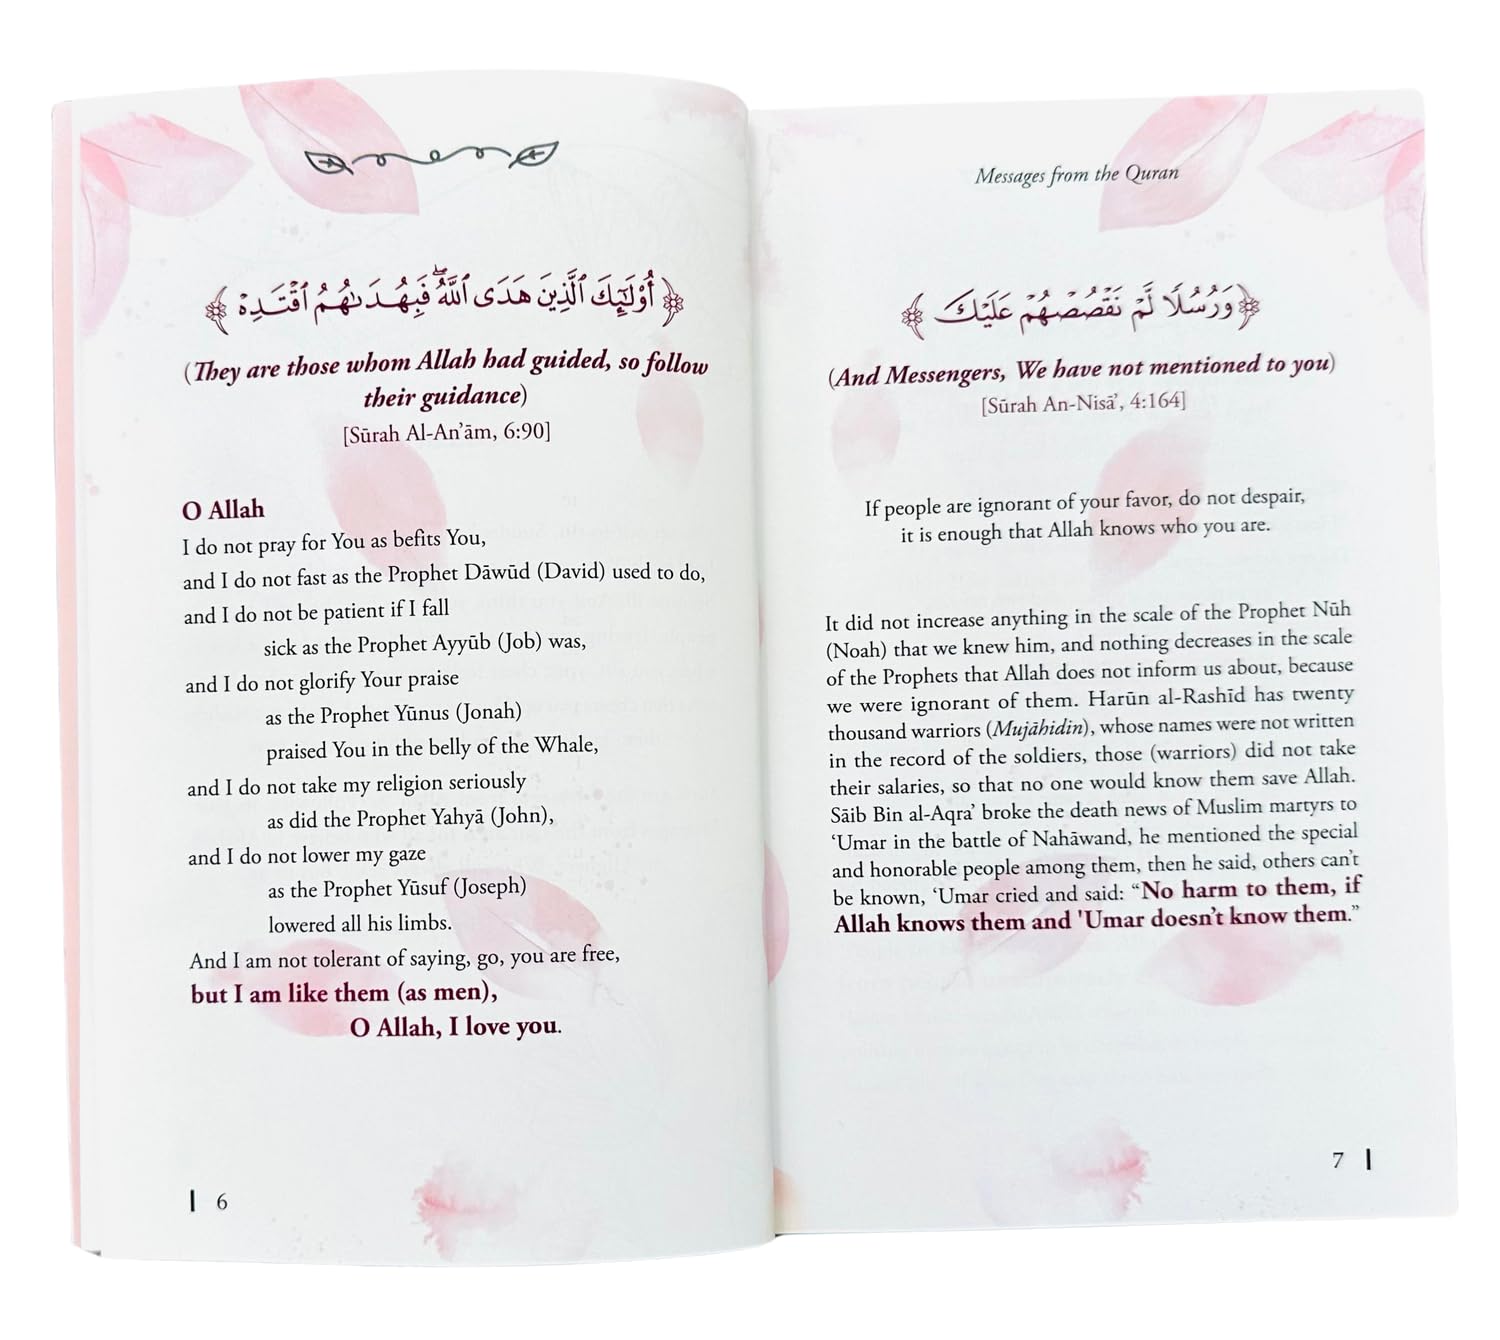 ﴿أُوْلَـٰٓئِكَ ٱلَّذِينَ هَدَى ٱللَّهُۖ فَبِهُدَىٰهُمُ ٱقْتَدِهْ﴾
(They are those whom Allah had guided, so follow
their guidance)
[Sūrah Al-An’ām, 6:90]
O Allah
I do not pray for You as befits You,
and I do not fast as the Prophet Dāwūd (David) used to do,
and I do not be patient if I fall
sick as the Prophet Ayyūb (Job) was,
and I do not glorify Your praise
as the Prophet Yūnus (Jonah)
praised You in the belly of the Whale,
and I do not take my religion seriously
as did the Prophet Yahyā (John),
and I do not lower my gaze
as the Prophet Yūsuf (Joseph)
lowered all his limbs.
And I am not tolerant of saying, go, you are free,
but I am like them (as men),
O Allah, I love you.
6
Messages from the Quran
﴿وَرُسُلًا لَّمْ نَقْصُصْهُمْ عَلَيْكَ﴾
(And Messengers, We have not mentioned to you)
[Sūrah An-Nisā’, 4:164]
If people are ignorant of your favor, do not despair,
it is enough that Allah knows who you are.
It did not increase anything in the scale of the Prophet Nūh
(Noah) that we knew him, and nothing decreases in the scale
of the Prophets that Allah does not inform us about, because
we were ignorant of them. Harūn al-Rashīd has twenty
thousand warriors (Mujāhidin), whose names were not written
in the record of the soldiers, those (warriors) did not take
their salaries, so that no one would know them save Allah.
Sāib Bin al-Aqra’ broke the death news of Muslim martyrs to
‘Umar in the battle of Nahāwand, he mentioned the special
and honorable people among them, then he said, others can’t
be known, ‘Umar cried and said: “No harm to them, if
Allah knows them and 'Umar doesn’t know them.”
7